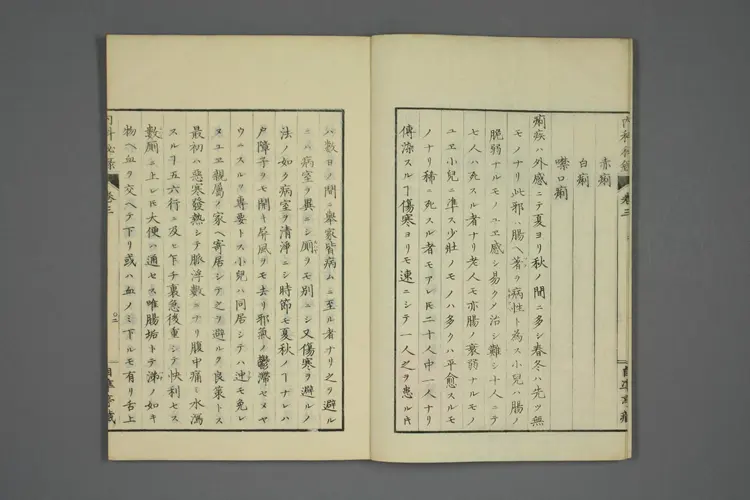 内科秘録
巻三
自準亭蔵
赤痢
白痢
噤口痢
痢疾ハ外感ニテ夏ヨリ秋ノ間ニ多シ春冬ハ先ツ無
モノナリ此邪ハ腸ヘ著ヲ病性ト為ス小児ハ腸ノ
脆弱ナルモノユヱ感シ易クノ治シ難シ十人ニテ
七人ハ死スル者ナリ老人モ亦腸ノ衰弱ナルモノ
ユヱ小児ニ準ス少壮ノモノハ多クハ平愈スルモ
ノナリ稀ニ死スル者モアレ𪜈二十人中一人ナリ
傳染スルヿ傷寒ヨリモ速ニシテ一人之ヲ患ル𪜈
ハ數日ノ間ニ舉家皆病ムニ至ル者ナリ之ヲ避ル
ニハ病室ヲ異ニシ厠ヲモ別ニシ又傷寒ヲ避ルノ
法ノ如ク病室ヲ清浄ニシ時節モ夏秋ノヿナレハ
戸障子ヲモ開キ屏風ヲモ去リ邪氣ノ鬱滞セヌヤ
ウニスルヲ專要トス小児ハ同居シテハ迚モ免レ
ヌユヱ親屬ノ家ヘ寄居シテ之ヲ避ルヲ良策トス
最初ハ悪寒發熱シテ脈浮數ニナリ腹中痛モ水瀉
スルヿ五六行ニ及ヒ乍チ裏急後重シテ快利セス
數厠ニ上レ𪜈大便ハ通セス唯腸垢トテ涕ノ如キ
物ヘ血ヲ交ヘテ下リ或ハ血ノミ下ルモ有リ舌上
内科秘録
巻三
〇二
自準亭蔵